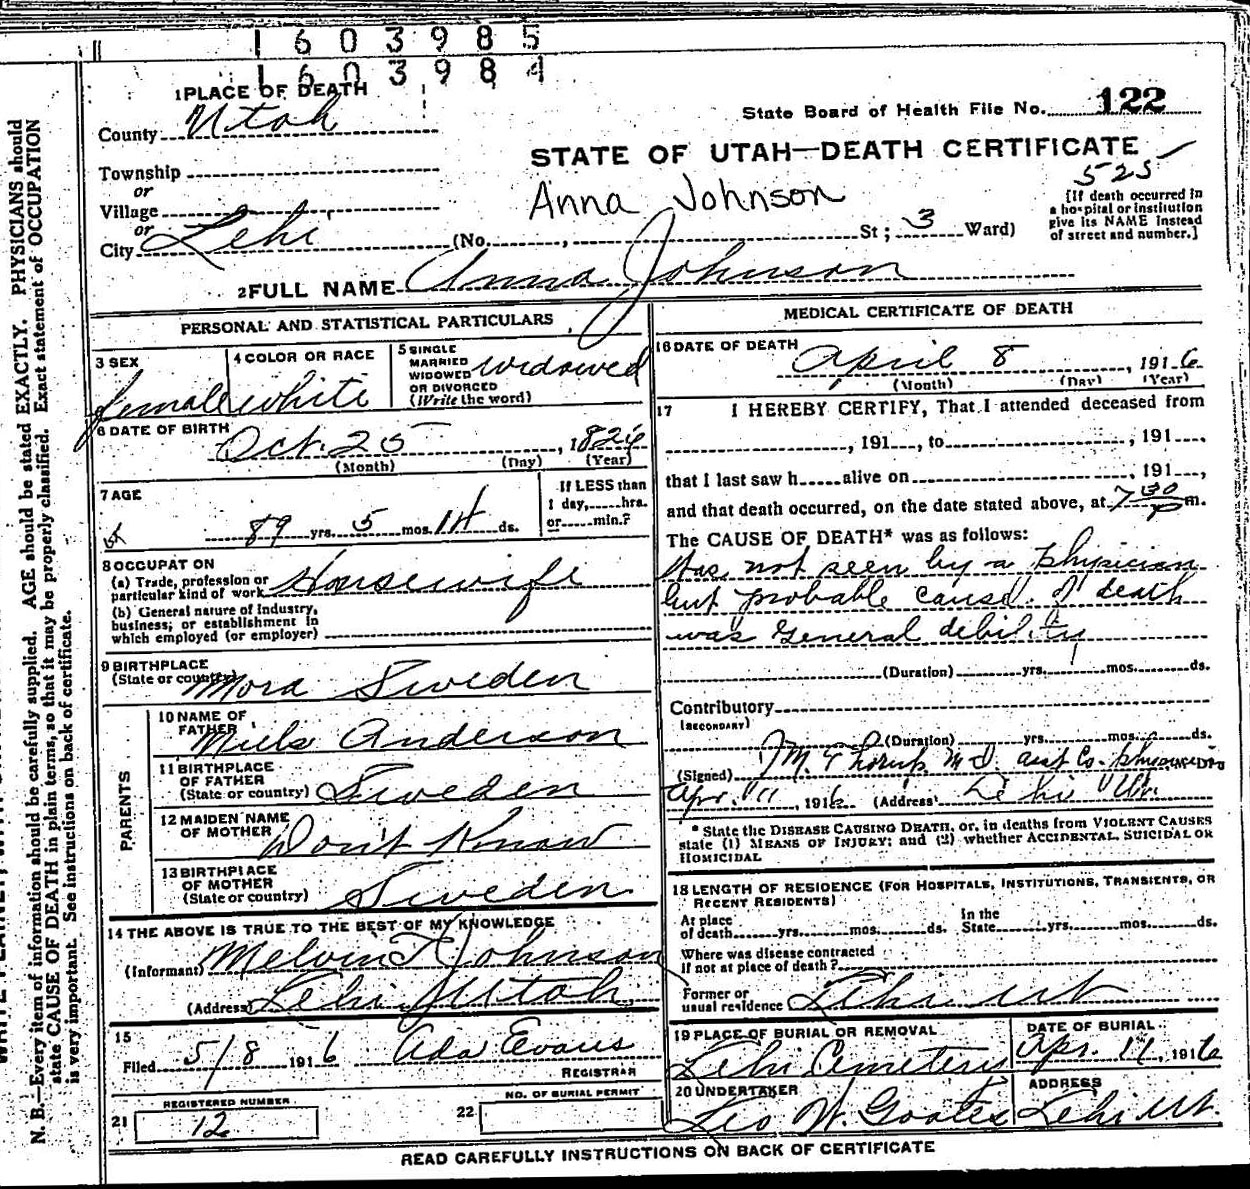 1 6 0 3 9 8 5
1 6 0 3 9 8 4
1 PLACE OF DEATH
County Utah
State Board of Health File No. 122
STATE OF UTAH—DEATH CERTIFICATE
525
Township
or
Village
or
City Lehi
Anna Johnson
(No. , St; 3 Ward)
[If death occurred in
a hospital or institution
give its NAME instead
of street and number.]
2 FULL NAME Anna Johnson
PERSONAL AND STATISTICAL PARTICULARS
3 SEX
female
4 COLOR OR RACE
white
5 SINGLE
MARRIED
WIDOWED
OR DIVORCED
(Write the word)
widowed
6 DATE OF BIRTH
Oct. 25, 1826
(Month) (Day) (Year)
7 AGE
89 yrs. 5 mos. 14 ds.
If LESS than
1 day,......hrs.
or......min.?
8 OCCUPATION
(a) Trade, profession or
particular kind of work Housewife
(b) General nature of Industry,
business; or establishment in
which employed (or employer)
9 BIRTHPLACE
(State or country) Mora Sweden
PARENTS
10 NAME OF
FATHER Niels Anderson
11 BIRTHPLACE
OF FATHER
(State or country) Sweden
12 MAIDEN NAME
OF MOTHER Don't Know
13 BIRTHPLACE
OF MOTHER
(State or country) Sweden
14 THE ABOVE IS TRUE TO THE BEST OF MY KNOWLEDGE
(Informant) Melvin T Johnson
(Address) Lehi Utah
15
Filed 5/8 1916 Ada Evans
REGISTRAR
21 REGISTERED NUMBER
12
22 NO. OF BURIAL PERMIT
MEDICAL CERTIFICATE OF DEATH
16 DATE OF DEATH
April 8, 1916
(Month) (Day) (Year)
17 I HEREBY CERTIFY, That I attended deceased from
, 191...., to , 191....,
that I last saw h......alive on , 191....,
and that death occurred, on the date stated above, at 7 30 P m.
The CAUSE OF DEATH* was as follows:
Was not seen by a physician
but probable cause of death
was General debility
(Duration) yrs. mos. ds.
Contributory
(SECONDARY)
(Duration) yrs. mos. ds.
(Signed) M. D. Co. physician
Apr. 11, 1916 (Address) Lehi Ut.
* State the DISEASE CAUSING DEATH, or, in deaths from VIOLENT CAUSES
state (1) MEANS OF INJURY; and (2) whether ACCIDENTAL, SUICIDAL OR
HOMICIDAL
18 LENGTH OF RESIDENCE (FOR HOSPITALS, INSTITUTIONS, TRANSIENTS, OR
RECENT RESIDENTS)
At place
of death yrs. mos. ds.
In the
State yrs. mos. ds.
Where was disease contracted
if not at place of death?
Former or
usual residence Lehi Ut
19 PLACE OF BURIAL OR REMOVAL
Lehi Cemetery
DATE OF BURIAL
Apr. 11, 1916
20 UNDERTAKER
Leo W. Goates
ADDRESS
Lehi Ut.
READ CAREFULLY INSTRUCTIONS ON BACK OF CERTIFICATE
N. B.—Every item of information should be carefully supplied. AGE should be stated EXACTLY. PHYSICIANS should
state CAUSE OF DEATH in plain terms, so that it may be properly classified. Exact statement of OCCUPATION
is very important. See instructions on back of certificate.